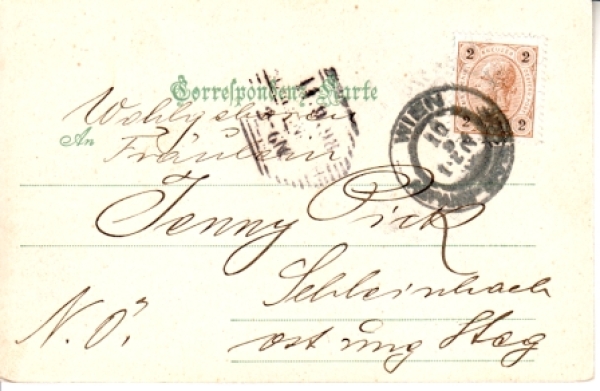 Correspondenz-Karte
Wohlgeboren
An
Fräulein
Jenny Pick
Schleinbach
N.Ö.
ost ung Steg
2 2
2 2
WIEN
11 9 98